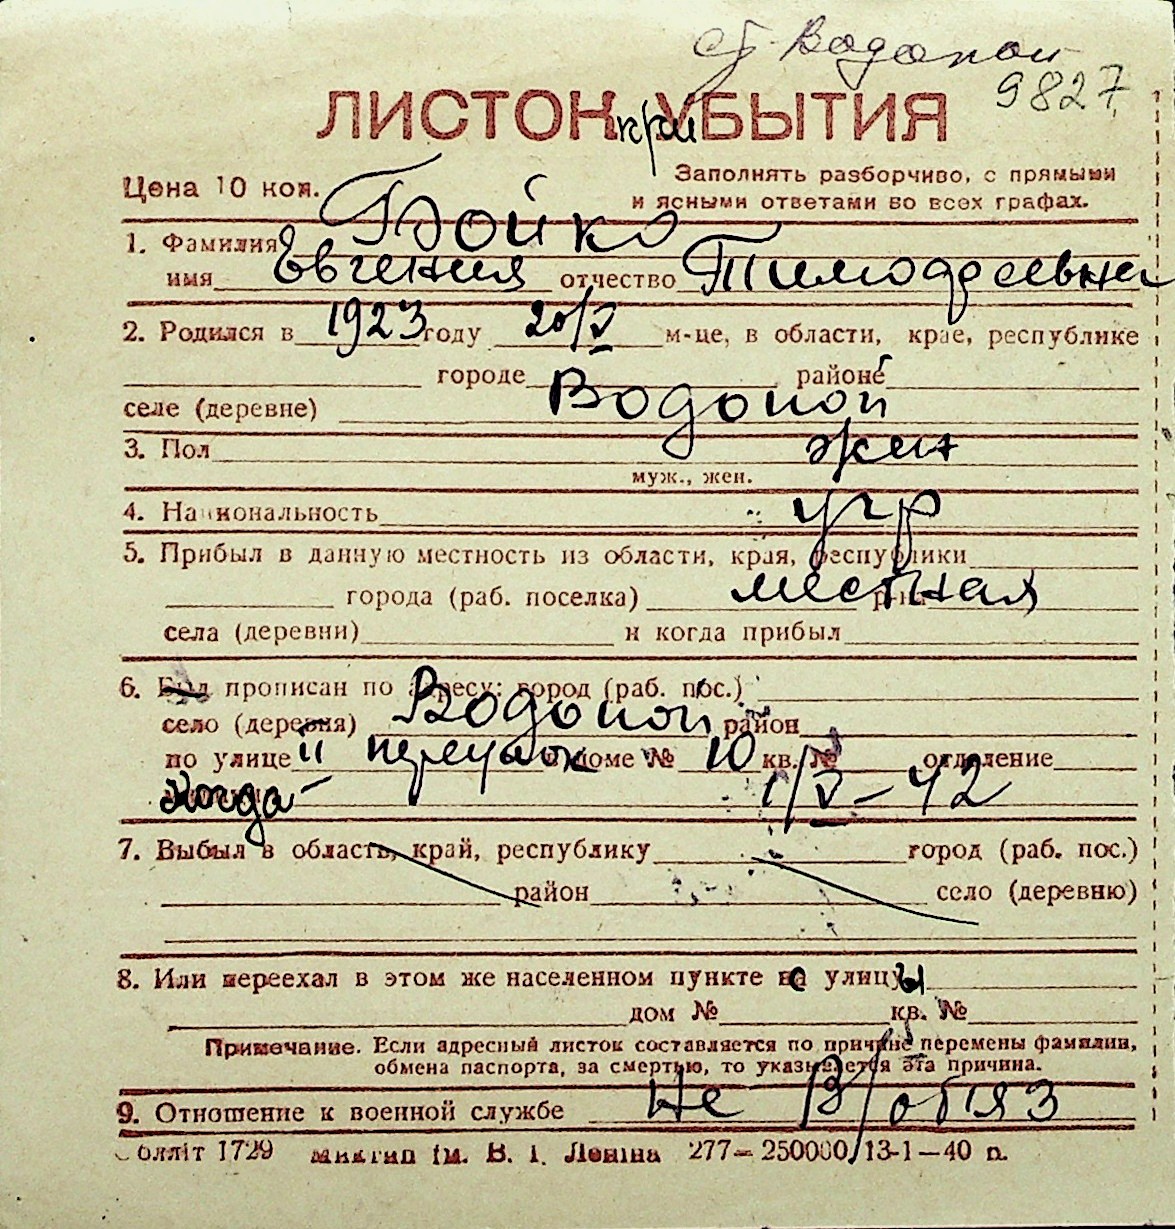 ст Водопой
9827
ЛИСТОК приУБЫТИЯ
Цена 10 коп.
Заполнять разборчиво, с прямыми
и ясными ответами во всех графах.
1. Фамилия Бойко
имя Евгения отчество Тимофеевна
2. Родился в 1923 году 20/V м-це, в области, крае, республике
городе районе
селе (деревне) Водопой
3. Пол жен
муж., жен.
4. Национальность укр
5. Прибыл в данную местность из области, края, республики
города (раб. поселка) местная
села (деревни) и когда прибыл
6. Был прописан по адресу: город (раб. пос.)
село (деревня) Водопой район
по улице II переулок в доме № 10 кв. № отделение
когда - 1/V - 42
7. Выбыл в область, край, республику город (раб. пос.)
район село (деревню)
8. Или переехал в этом же населенном пункте с улицы
дом № кв. №
Примечание. Если адресный листок составляется по причине перемены фамилии,
обмена паспорта, за смертью, то указывается эта причина.
9. Отношение к военной службе Не В/обяз
облліт 1729 ім. В. І. Леніна 277—250000/13-1—40 п.